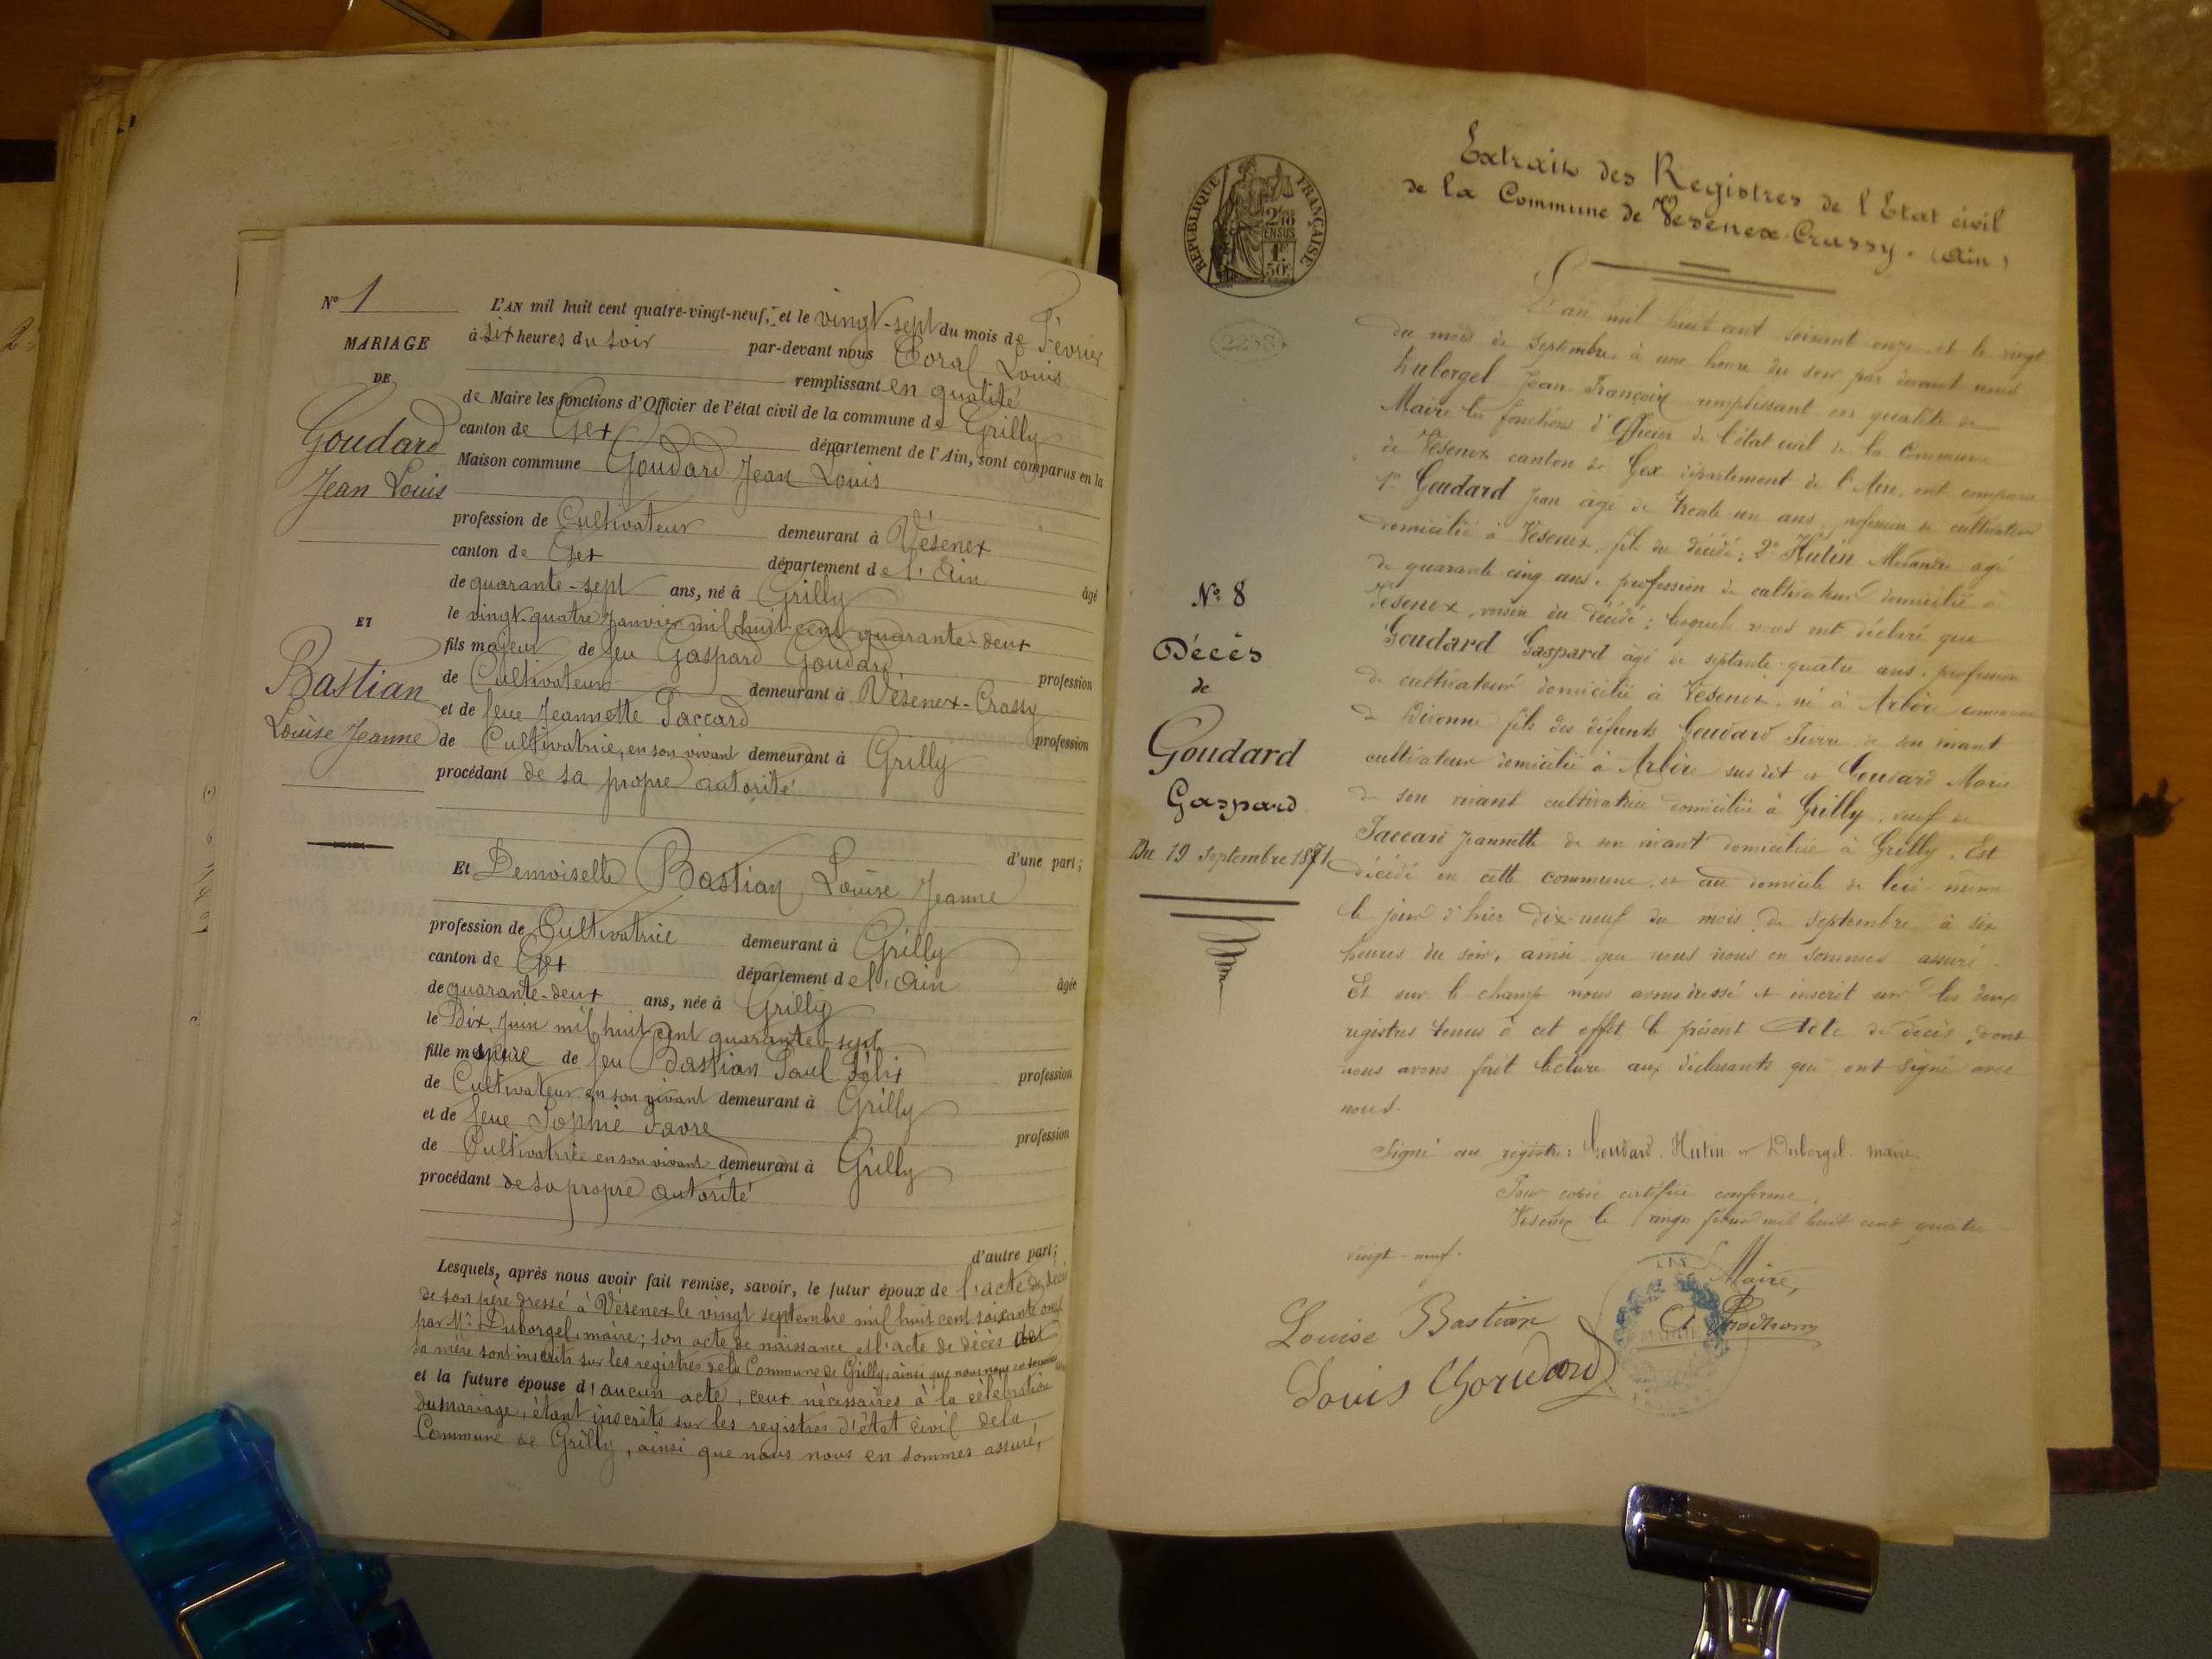 Nº 1
MARIAGE
DE
Goudard
Jean Louis
ET
Bastian
Louise Jeanne
L'AN mil huit cent quatre-vingt-neuf, et le vingt-sept du mois de Février
à six heures du soir par-devant nous Coral Louis
remplissant en qualité
de Maire les fonctions d'Officier de l'état civil de la commune de Grilly
canton de Gex département de l'Ain, sont comparus en la
Maison commune Goudard Jean Louis
profession de Cultivateur demeurant à Vésenex
canton de Gex département de l'Ain âgé
de quarante-sept ans, né à Grilly
le vingt-quatre Janvier mil huit cent quarante-deux
fils majeur de feu Gaspard Goudard profession
de Cultivateur demeurant à Vésenex-Crassy
et de feue Jeannette Paccard profession
de Cultivatrice, en son vivant demeurant à Grilly
procédant de sa propre autorité
d'une part;
Et Demoiselle Bastian Louise Jeanne
profession de Cultivatrice demeurant à Grilly
canton de Gex département de l'Ain âgée
de quarante-deux ans, née à Grilly
le Dix Juin mil huit cent quarante-sept
fille majeure de feu Bastian Paul Félix profession
de Cultivateur en son vivant demeurant à Grilly
et de feue Sophie Favre profession
de Cultivatrice en son vivant demeurant à Grilly
procédant de sa propre autorité
d'autre part;
Lesquels, après nous avoir fait remise, savoir, le futur époux de l'acte de décès
de son père dressé à Vésenex le vingt septembre mil huit cent soixante onze
par Mr Duborgel, maire; son acte de naissance et l'acte de décès de
sa mère sont inscrits sur les registres de la Commune de Grilly, ainsi que nous nous en sommes
et la future épouse d'aucun acte, ceux nécessaires à la célébration
du mariage, étant inscrits sur les registres d'état civil de la
Commune de Grilly, ainsi que nous nous en sommes assuré,
RÉPUBLIQUE FRANÇAISE
2/10
EN SUS
1F
50c
Extrait des Registres de l'Etat civil
de la Commune de Vesenex-Crassy. (Ain)
Nº 8
Décès
de
Goudard
Gaspard
Du 19 septembre 1871
L'an mil huit cent soixant onze et le vingt
du mois de Septembre à une heure du soir par devant nous
Duborgel Jean-François remplissant en qualité de
Maire les fonctions d'Officier de l'état civil de la Commune
de Vésenex canton de Gex département de l'Ain, ont comparu
1º Goudard Jean âgé de trente un ans, profession de cultivateur
domicilié à Vésenex, fils du décédé; 2º Hutin Alexandre âgé
de quarante cinq ans, profession de cultivateur domicilié à
Vésenex, voisin du décédé; lesquels nous ont déclaré que
Goudard Gaspard âgé de septante-quatre ans, profession
de cultivateur domicilié à Vésenex, né à Arbère commune
de Divonne fils des défunts Goudard Pierre de son vivant
cultivateur domicilié à Arbère susdit et Goudard Marie
de son vivant cultivatrice domiciliée à Grilly, veuf de
Paccard Jeannette de son vivant domiciliée à Grilly. Est
décédé en cette commune, et au domicile de lui-même
le jour d'hier dix-neuf du mois de septembre à six
heures du soir, ainsi que nous nous en sommes assuré.
Et sur-le-champ nous avons dressé et inscrit sur les deux
registres tenus à cet effet le présent Acte de décès, dont
nous avons fait lecture aux déclarants qui ont signé avec
nous.
Signé au registre: Goudard, Hutin et Duborgel, maire.
Pour copie certifiée conforme.
Vésenex le vingt février mil huit cent quatre
vingt-neuf.
Maire,
Louise Bastian
Louis Goudard